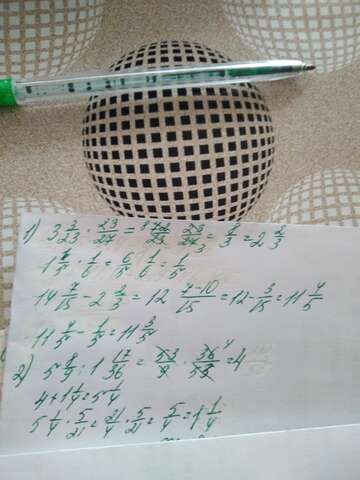 1) 3 3/23 · 23/27 = 72/23 · 23/27 = 8/3 = 2 2/3
1 1/5 · 1/6 = 6/5 · 1/6 = 1/5
14 7/15 - 2 2/3 = 12 7-10/15 = 12 - 3/15 = 11 4/5
11 4/5 - 1/5 = 11 3/5
2) 5 8/9 : 1 17/36 = 53/9 · 36/53 = 4
4 + 1 1/4 = 5 1/4
5 1/4 · 5/21 = 21/4 · 5/21 = 5/4 = 1 1/4